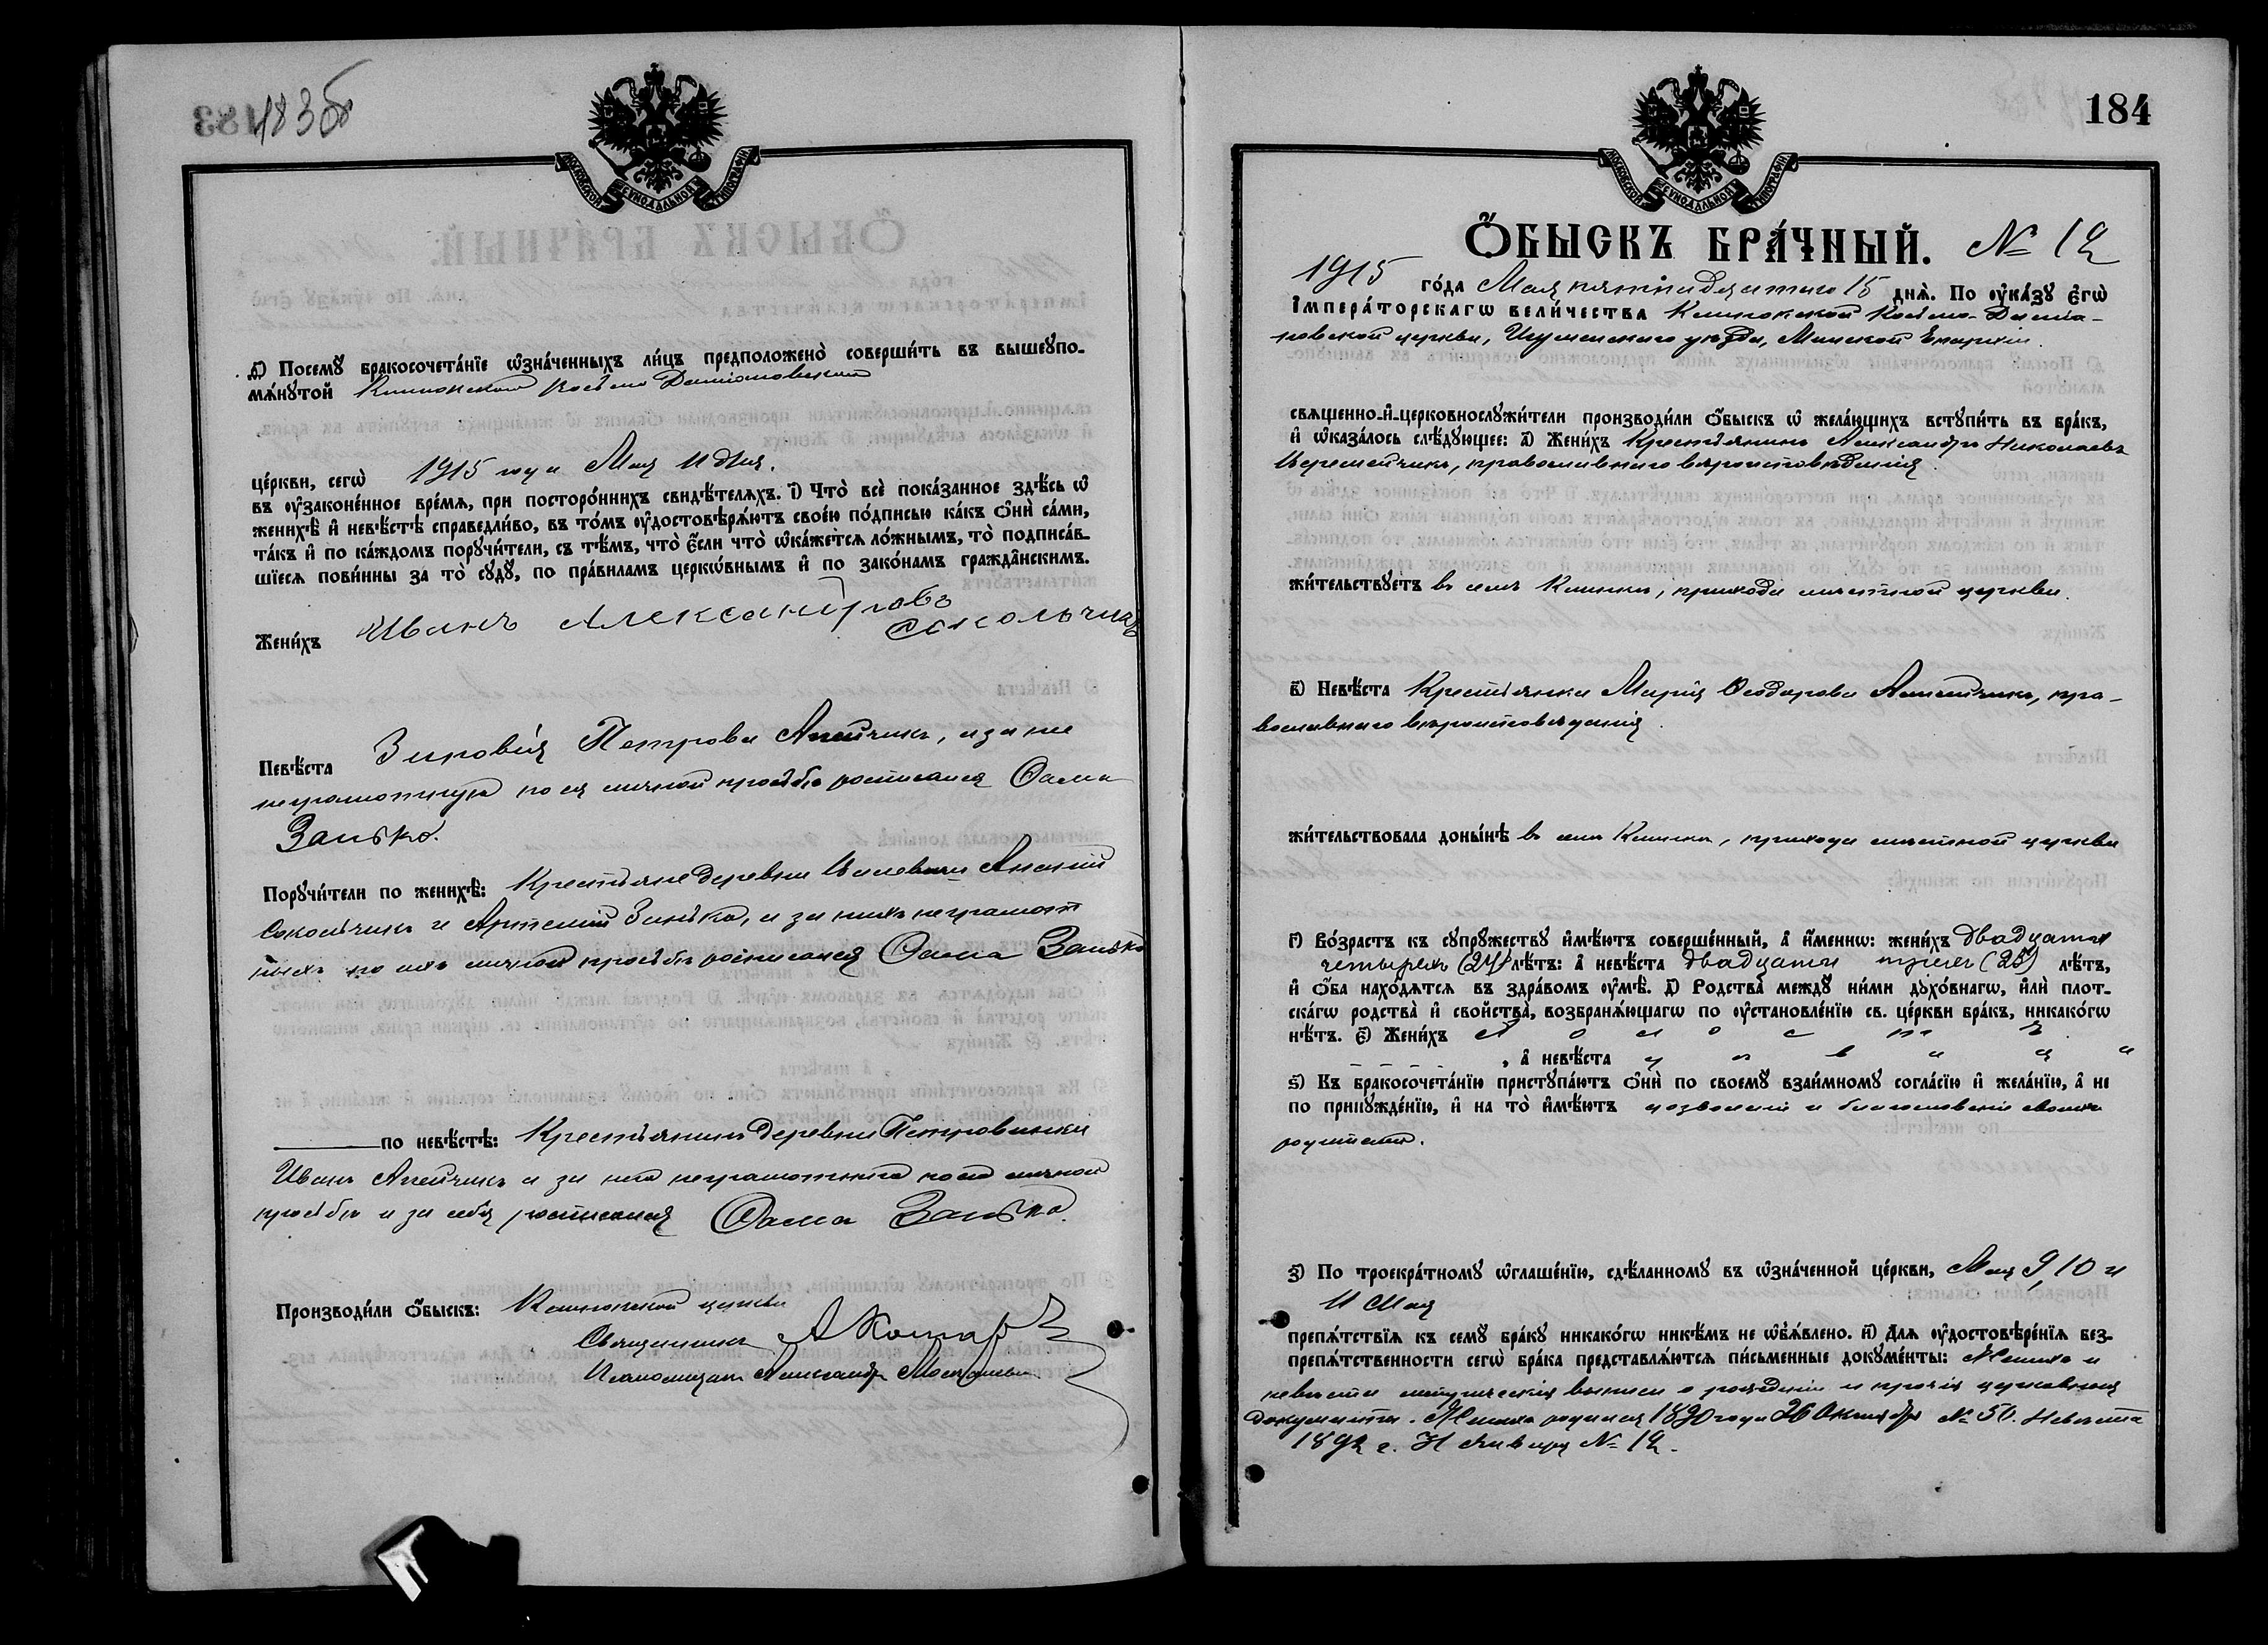 183об
МОСКОВСКОЙ СѴНОДАЛЬНОЙ ТИПОГРАФІИ
д҃) Посемꙋ̀ бракосочета́нїе ѡ҆зна́ченныхъ ли́цъ предположено̀ соверши́ть въ вышеꙋпо-
мѧ́нꙋтой Клинокской Косьмо Даміановской
це́ркви, сегѡ̀ 1915 года Мая 11 дня.
въ ᲂу҆зако́ненное вре́мѧ, при посторо́ннихъ свидѣ́телѧхъ. і҃) Что̀ всѐ пока́занное здѣ́сь ѡ҆
женихѣ̀ и҆ невѣ́стѣ справедли́во, въ то́мъ ᲂу҆достовѣрѧ́ютъ свое́ю по́дписью ка́къ ѻ҆нѝ са́ми,
та́къ и҆ по ка́ждомъ порꙋчи́тели, съ тѣ́мъ, что̀ є҆́сли что̀ ѡ҆ка́жетсѧ ло́жнымъ, то̀ подписа́в-
шїесѧ пови́нны за то̀ сꙋдꙋ̀, по пра́виламъ церкѡ́внымъ и҆ по зако́намъ гражда̑нскимъ.
Жени́хъ Иванъ Александровъ
Сокольчикъ
Невѣ́ста Зиновія Петрова Апейчикъ, а за не
неграмотную по ея личной просьбѣ росписался Ѳома
Занько.
Порꙋчи́тели по женихѣ̀: Крестьяне деревни
Сокольчикъ и Артемій Занько, а за нихъ неграмот
ныхъ по ихъ личной просьбѣ росписался Ѳома Занько
по невѣ́стѣ: Крестьянинъ деревни Петровинки
Иванъ Апейчикъ а за него неграмотнаго по его личной
просьбѣ и за себя росписался Ѳома Занько.
Производи́ли ѻ҆́быскъ: Клинокской церкви
Священникъ
Псаломщикъ Александръ
184
МОСКОВСКОЙ СѴНОДАЛЬНОЙ ТИПОГРАФІИ
Ѻ҆́БЫСКЪ БРА́ЧНЫЙ. № 12
1915 го́да Мая пятнадцатаго 15 днѧ̀. По ᲂу҆ка́зꙋ є҆гѡ̀
І҆мпера́торскагѡ вели́чества Клинокской Косьмо-Даміа-
новской церкви, Игуменскаго уѣзда, Минской Епархіи.
свѧщенно-и҆-церковнослꙋжи́тели производи́ли ѻ҆́быскъ ѡ҆ жела́ющихъ встꙋпи́ть въ бра́къ,
и҆ ѡ҆каза́лось слѣ́дꙋющее: а҃) Жени́хъ Крестьянинъ Александръ Николаевъ
православнаго вѣроисповѣданія.
жи́тельствꙋетъ въ селѣ Клинкѣ, прихода мѣстной церкви.
в҃) Невѣ́ста Крестьянка Марія Ѳеодорова Апейчикъ, пра-
вославнаго вѣроисповѣданія.
жи́тельствовала доны́нѣ въ селѣ Клинкѣ, прихода мѣстной церкви
г҃) Во́зрастъ къ сꙋпрꙋ́жествꙋ и҆мѣ́ютъ соверше́нный, а҆ и҆́менно: жени́хъ двадцати
четырехъ (24) лѣ́тъ: а҆ невѣ́ста двадцати трехъ (23) лѣ́тъ,
и҆ ѻ҆́ба нахо́дѧтсѧ въ здра́вомъ ᲂу҆мѣ̀. д҃) Родства̀ междꙋ̀ ни́ми дꙋхо́внагѡ, и҆лѝ плот-
ска́гѡ родства̀ и҆ сво́йства, возбранѧ́ющагѡ по ᲂу҆становле́нїю св. це́ркви бра́къ, никако́гѡ
нѣ́тъ. є҃) Жени́хъ х о л о с т ъ
, а҆ невѣ́ста д ѣ в и ц а
ѕ҃) Къ бракосочета́нїю пристꙋпа́ютъ ѻ҆нѝ по своемꙋ̀ взаи́мномꙋ согла́сїю и҆ жела́нїю, а҆ не
по принꙋжде́нїю, и҆ на то̀ и҆мѣ́ютъ дозволеніе и благословеніе своихъ
родителей.
з҃) По троекра́тномꙋ ѡ҆глаше́нїю, сдѣ́ланномꙋ въ ѡ҆зна́ченной це́ркви, Мая 9, 10 и
11 Мая
препѧ́тствїѧ къ семꙋ̀ бра́кꙋ никако́гѡ никѣ́мъ не ѡ҆б̾ѧ́влено. и҃) Длѧ ᲂу҆достовѣре́нїѧ без-
препѧ́тственности сегѡ̀ бра́ка представлѧ́ютсѧ пи́сьменные докꙋме́нты: Жениха и
невѣсты метрическія выписи о рожденіи и прочія церковныя
документы. Женихъ родился 1890 года 26 Октября № 50. Невѣста
1892 г. 31 Января № 12.